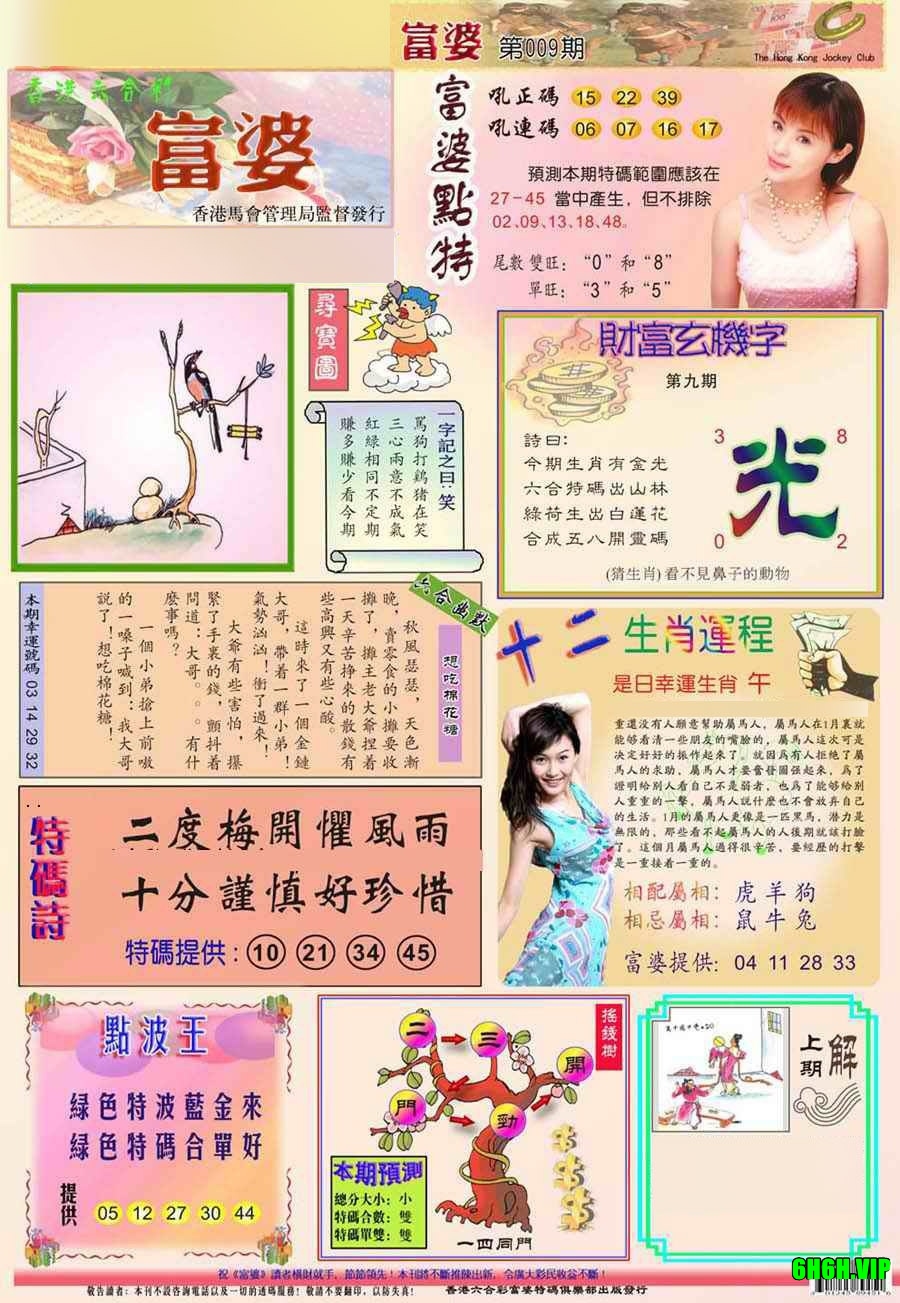 富婆 第009期
The Hong Kong Jockey Club
香港六合彩
富婆
香港馬會管理局監督發行
富婆點特
吼正碼 15 22 39
吼連碼 06 07 16 17
預測本期特碼範圍應該在
27-45 當中產生，但不排除
02、09、13、18、48。
尾數雙旺：“0”和“8”
單旺：“3”和“5”
尋寶圖
一字記之曰：笑
罵狗打鷄猪在笑
三心兩意不成氣
紅綠相同不定期
賺多賺少看今期
財富玄機字
第九期
詩曰：
今期生肖有金光
六合特碼出山林
綠荷生出白蓮花
合成五八開靈碼
3 8
光
0 2
(猜生肖)看不見鼻子的動物
六合幽默
想吃棉花糖
秋風瑟瑟，天色漸
晚，賣零食的小攤要收
攤了，攤主老大爺捏着
一天辛苦挣來的散錢有
些高興又有些心酸。
這時來了一個金鏈
大哥，帶着一群小弟！
氣勢汹汹！衝了過來，
大爺有些害怕，攥
緊了手裏的錢，顫抖着
問道：大哥。。。有什
麽事嗎？
一個小弟搶上前嗷
的一嗓子喊到：我大哥
說了！想吃棉花糖！
本期幸運號碼 03 14 29 32
十二生肖運程
是日幸運生肖 午
重還没有人願意幫助屬馬人，屬馬人在1月裏就
能够看清一些朋友的嘴臉的，屬馬人這次可是
决定好好的振作起來了，就因爲有人拒绝了屬
馬人的求助，屬馬人才要奮發圖强起來，爲了
證明给别人看自己不是弱者，也爲了能够给别
人重重的一擊，屬馬人説什麽也不會放弃自己
的生活。1月的屬馬人更像是一匹黑馬，潜力是
無限的，那些看不起屬馬人的人後期就該打臉
了。這個月屬馬人過得很辛苦，要經歷的打擊
是一重接着一重的。
相配屬相：虎羊狗
相忌屬相：鼠牛兔
富婆提供：04 11 28 33
特碼詩
二度梅開懼風雨
十分謹慎好珍惜
特碼提供：10 21 34 45
點波王
綠色特波藍金來
綠色特碼合單好
提供 05 12 27 30 44
搖錢樹
二 三 開
門 勁
本期預測
總分大小：小
特碼合數：雙
特碼單雙：雙
一四同門
上期解
祝《富婆》讀者横財就手，節節領先！本刊將不斷推陳出新，令廣大彩民收益不斷！
敬告讀者：本刊不設咨詢電話以及一切的透碼服務！敬請不要翻印，以防失真！
香港六合彩富婆特碼俱樂部出版發行
6H6H.VIP